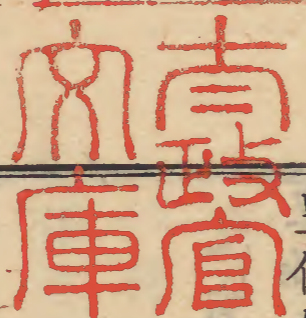 太政官
文庫